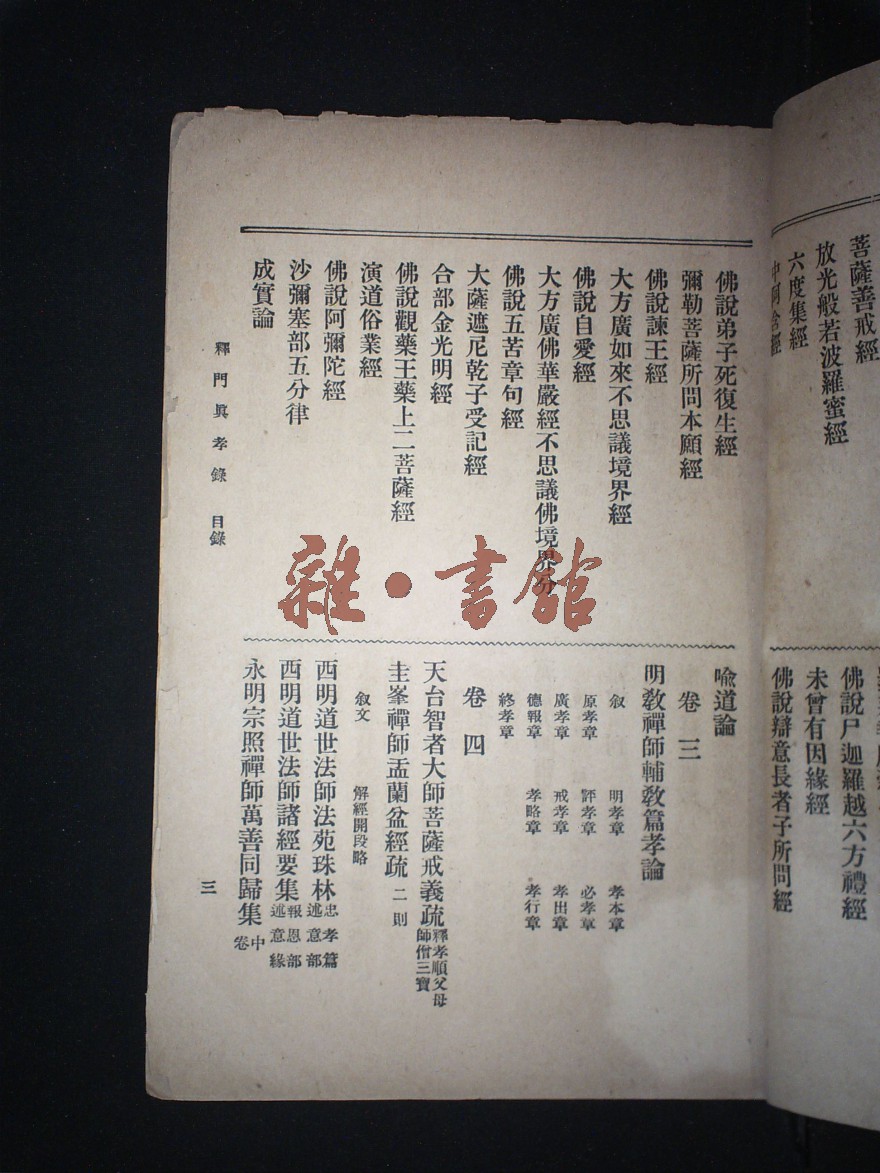 菩薩善戒經
放光般若波羅蜜經
六度集經
中阿含經
佛說尸迦羅越六方禮經
未曾有因緣經
佛說辯意長者子所問經
佛說弟子死復生經
彌勒菩薩所問本願經
佛說諫王經
大方廣如來不思議境界經
佛說自愛經
大方廣佛華嚴經不思議佛境界分
佛說五苦章句經
大薩遮尼乾子受記經
合部金光明經
佛說觀藥王藥上二菩薩經
演道俗業經
佛說阿彌陀經
沙彌塞部五分律
成實論
喩道論
卷三
明敎禪師輔敎篇孝論
叙 明孝章 孝本章
原孝章 評孝章 必孝章
廣孝章 戒孝章 孝出章
德報章 孝略章 孝行章
終孝章
卷四
天台智者大師菩薩戒義疏釋孝順父母師僧三寶
圭峯禪師盂蘭盆經疏 二則
叙文 解經開段略
西明道世法師法苑珠林忠孝篇述意部
西明道世法師諸經要集報恩部述意緣
永明宗照禪師萬善同歸集中卷
釋門眞孝錄 目錄
三
雜·書館